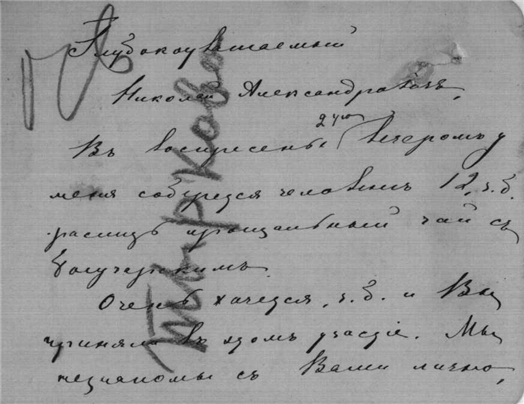 Глубокоуважаемый
Николай Александровичъ,
Въ воскресенье 24го вечеромъ у
меня соберется человекъ 12, ч.б.
распить прощальный чай съ
Богучарскимъ.
Очень хочется, ч.б. и Вы
приняли въ этомъ участіе. Мы
незнакомы съ Вами лично,
Тыркова